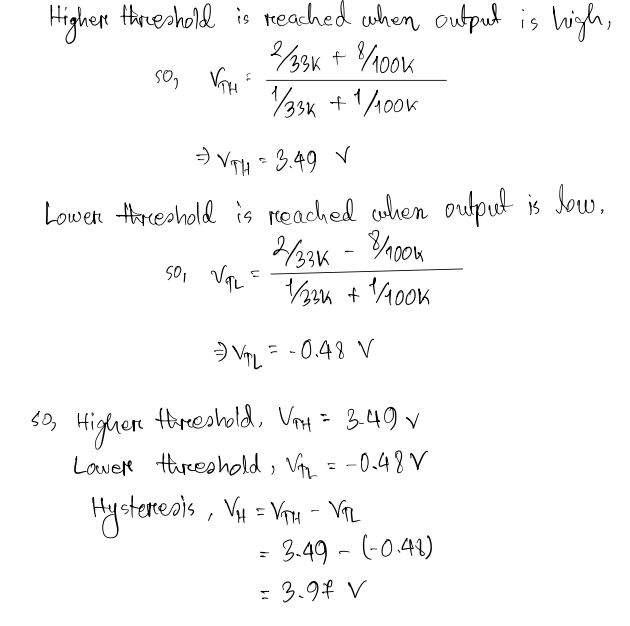 Higher threshold is reached when output is high,
so, V_TH = (2/33K + 8/100K) / (1/33K + 1/100K)
⇒ V_TH = 3.49 V
Lower threshold is reached when output is low.
so, V_TL = (2/33K - 8/100K) / (1/33K + 1/100K)
⇒ V_TL = -0.48 V
so, Higher threshold, V_TH = 3.49 V
Lower threshold, V_TL = -0.48 V
Hysteresis, V_H = V_TH - V_TL
= 3.49 - (-0.48)
= 3.97 V